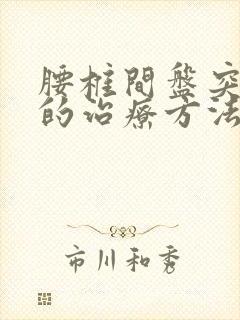 腰椎間盤突
的治療方法
市川和秀